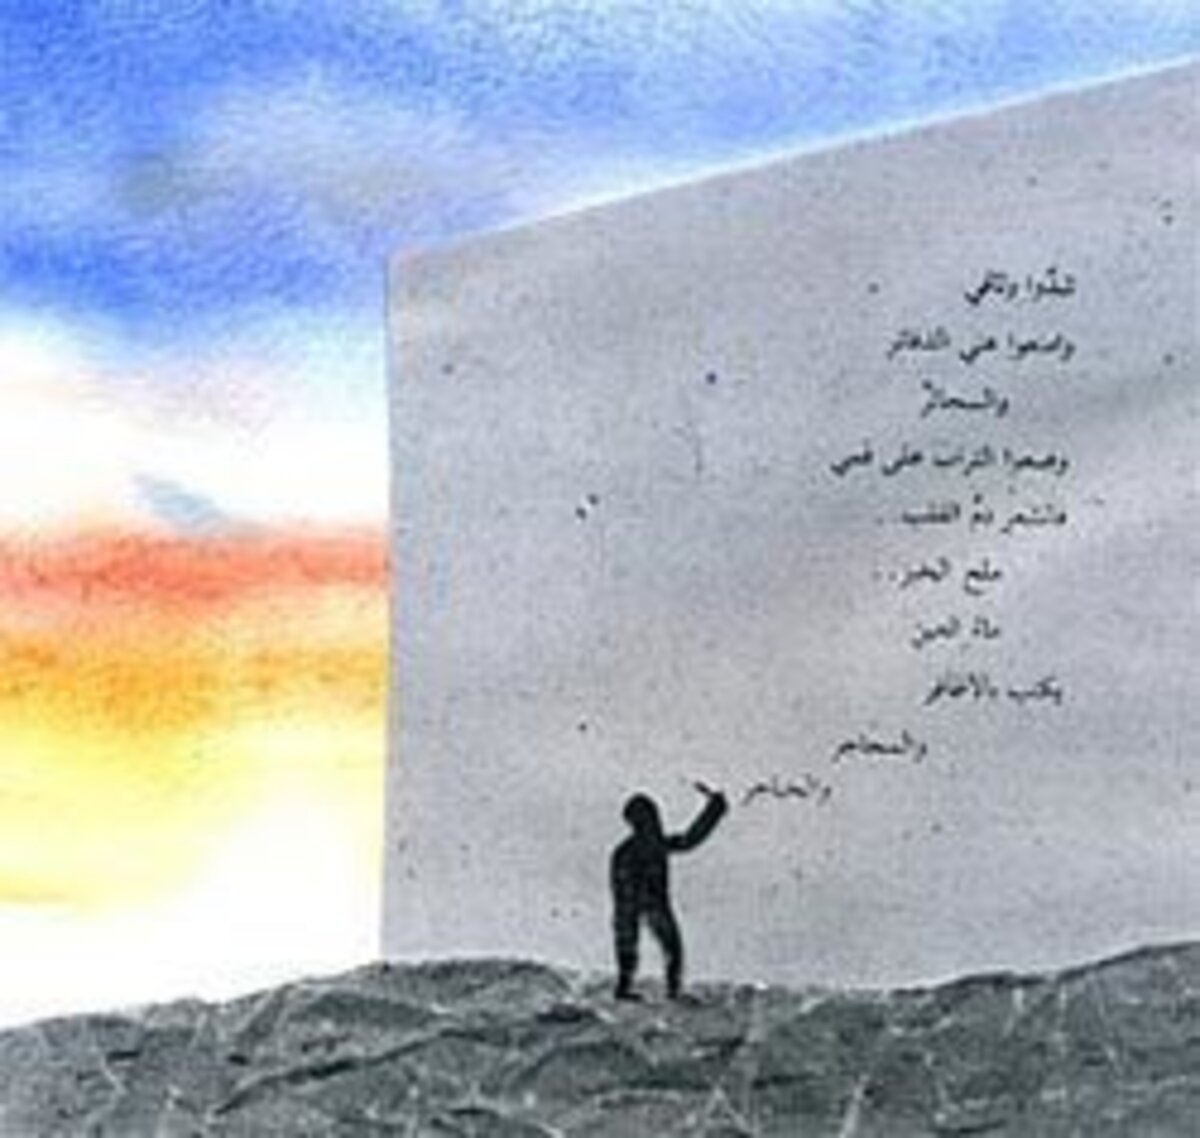 شدّوا وثاقي
وامنعوا عني الدفاتر
والسجائرْ
وضعوا التراب على فمي
فالشعر دمُّ القلب..
ملح الخبز..
ماء العين
يكتب بالاظافر
والمحاجر
والخناجر